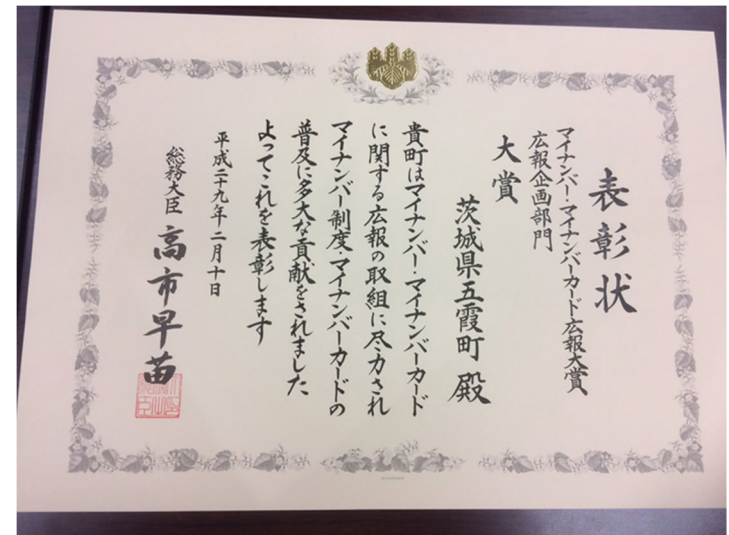 表彰状
マイナンバー・マイナンバーカード広報大賞
広報企画部門
大賞
茨城県五霞町 殿
貴町はマイナンバー・マイナンバーカード
に関する広報の取組に尽力され
マイナンバー制度・マイナンバーカードの
普及に多大な貢献をされました
よってこれを表彰します
平成二十九年二月十日
総務大臣 高市早苗